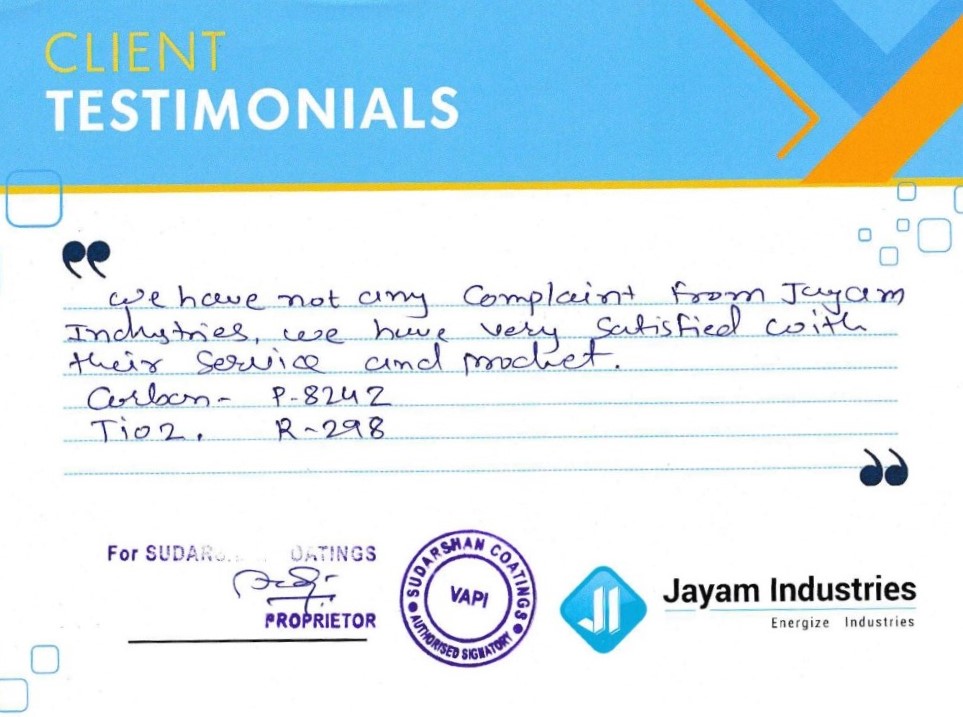 CLIENT
TESTIMONIALS
we have not any Complaint from Jayam
Industries, we have very Satisfied with
their Service and product.
Carbon - P-8242
Tio2. R-298
For SUDARSHAN COATINGS
PROPRIETOR
SUDARSHAN COATINGS
VAPI
AUTHORISED SIGNATORY
JI
Jayam Industries
Energize Industries